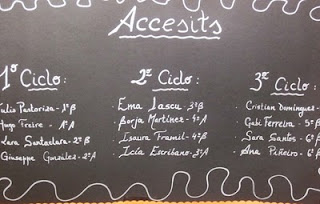 Accesits
1º Ciclo:
Julio Pastoriza - 1ºB
Hugo Freire - 1ºA
Lara Santaclara - 2ºB
Giuseppe González - 2ºA
2º Ciclo:
Ema Iascu - 3ºB
Borja Martínez - 4ºA
Isaura Framil - 4ºB
Icía Escribano - 3ºA
3º Ciclo:
Cristian Domínguez -
Gabi Ferreira - 5º
Sara Santos - 6º
Ana Piñeiro - 6º